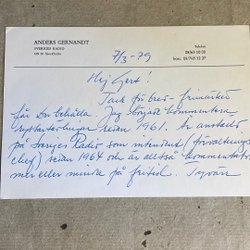 ANDERS GERNANDT
SVERIGES RADIO
Telefon
7/3-79
Hej Gert!
Tack för brev - frimärket
får Du behålla. Jag börjat kommentera
ryttartävlingar sedan 1961. Är anställd
på Sveriges Radio som intendent (förvaltnings-
chef) sedan 1964 och är alltså kommentator
mer eller mindre på fritid. Tyvärr